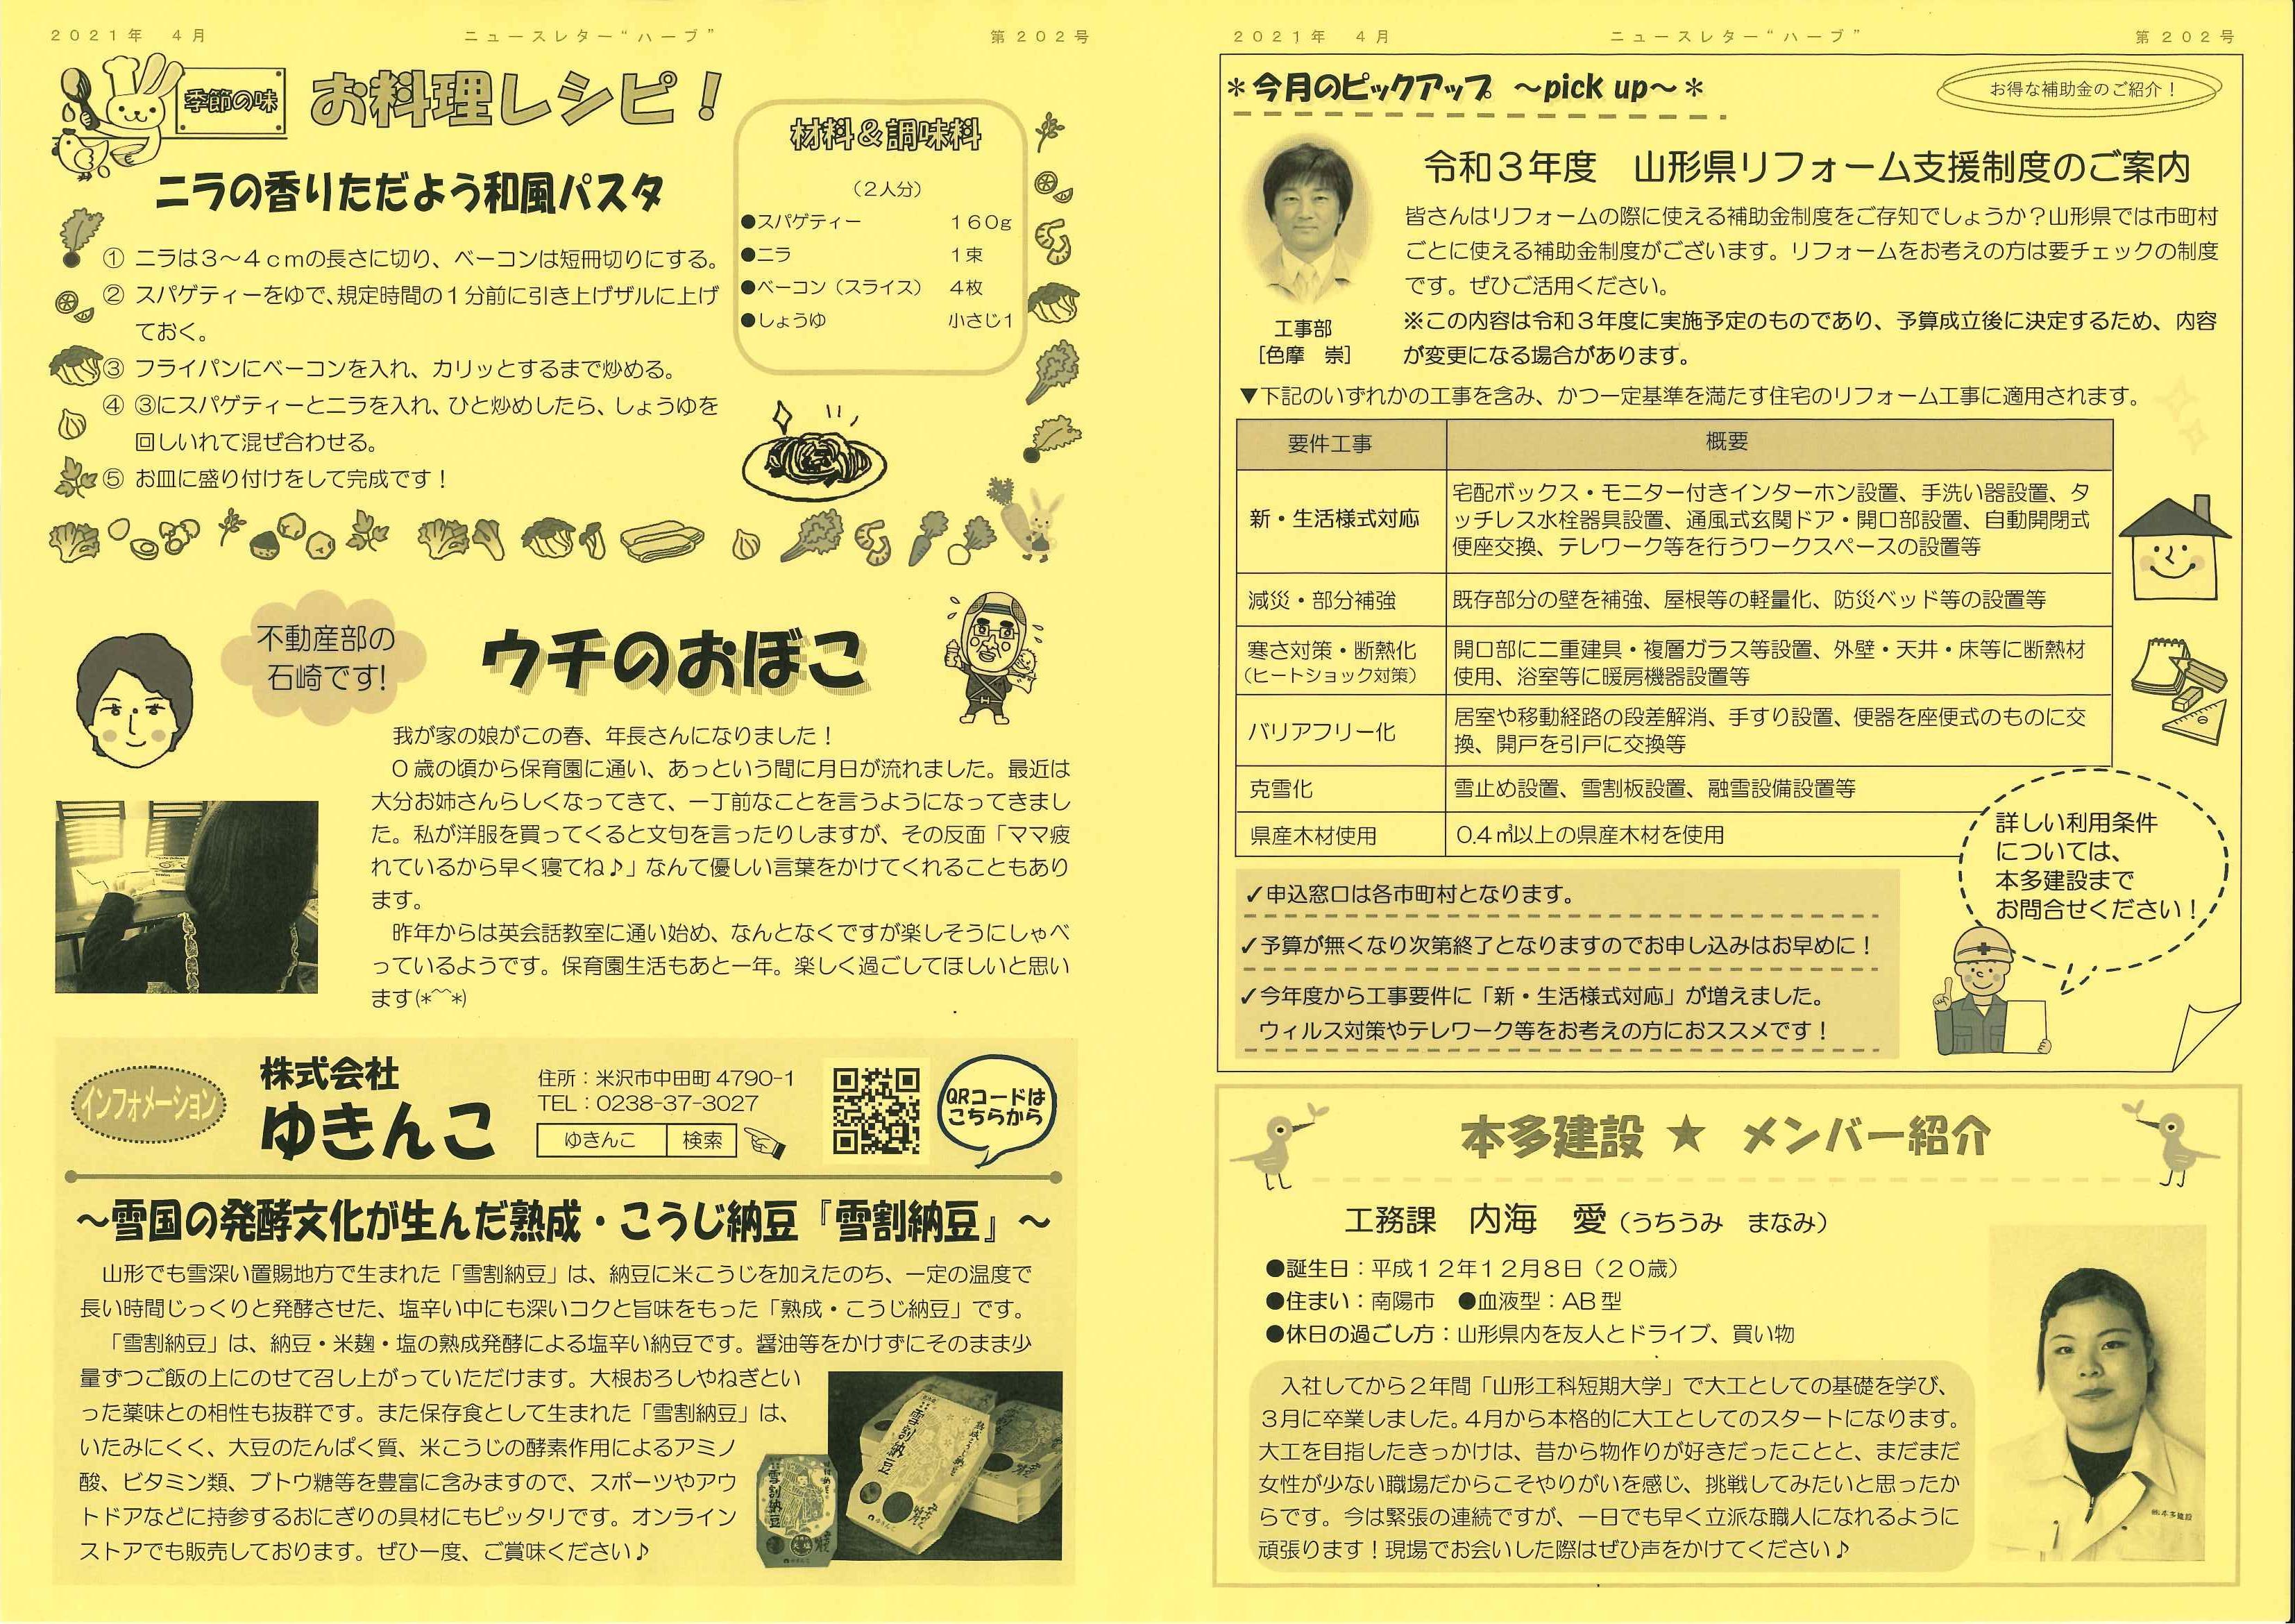 2021年　4月
ニュースレター“ハーブ”
第202号
季節の味
お料理レシピ！
ニラの香りただよう和風パスタ
① ニラは3～4cmの長さに切り、ベーコンは短冊切りにする。
② スパゲティーをゆで、規定時間の1分前に引き上げザルに上げ
ておく。
③ フライパンにベーコンを入れ、カリッとするまで炒める。
④ ③にスパゲティーとニラを入れ、ひと炒めしたら、しょうゆを
回しいれて混ぜ合わせる。
⑤ お皿に盛り付けをして完成です！
材料＆調味料
（2人分）
●スパゲティー　160g
●ニラ　1束
●ベーコン（スライス）　4枚
●しょうゆ　小さじ1
不動産部の
石崎です!
ウチのおぼこ
我が家の娘がこの春、年長さんになりました！
0歳の頃から保育園に通い、あっという間に月日が流れました。最近は
大分お姉さんらしくなってきて、一丁前なことを言うようになってきまし
た。私が洋服を買ってくると文句を言ったりしますが、その反面「ママ疲
れているから早く寝てね♪」なんて優しい言葉をかけてくれることもあり
ます。
昨年からは英会話教室に通い始め、なんとなくですが楽しそうにしゃべ
っているようです。保育園生活もあと一年。楽しく過ごしてほしいと思い
ます(*^^*)
インフォメーション
株式会社
ゆきんこ
住所：米沢市中田町4790-1
TEL：0238-37-3027
ゆきんこ　検索
QRコードは
こちらから
～雪国の発酵文化が生んだ熟成・こうじ納豆『雪割納豆』～
山形でも雪深い置賜地方で生まれた「雪割納豆」は、納豆に米こうじを加えたのち、一定の温度で
長い時間じっくりと発酵させた、塩辛い中にも深いコクと旨味をもった「熟成・こうじ納豆」です。
「雪割納豆」は、納豆・米麹・塩の熟成発酵による塩辛い納豆です。醤油等をかけずにそのまま少
量ずつご飯の上にのせて召し上がっていただけます。大根おろしやねぎとい
った薬味との相性も抜群です。また保存食として生まれた「雪割納豆」は、
いたみにくく、大豆のたんぱく質、米こうじの酵素作用によるアミノ
酸、ビタミン類、ブトウ糖等を豊富に含みますので、スポーツやアウ
トドアなどに持参するおにぎりの具材にもピッタリです。オンライン
ストアでも販売しております。ぜひ一度、ご賞味ください♪
雪割納豆
雪割納豆
2021年　4月
ニュースレター“ハーブ”
第202号
＊今月のピックアップ　～pick up～＊
お得な補助金のご紹介！
令和3年度　山形県リフォーム支援制度のご案内
皆さんはリフォームの際に使える補助金制度をご存知でしょうか？山形県では市町村
ごとに使える補助金制度がございます。リフォームをお考えの方は要チェックの制度
です。ぜひご活用ください。
※この内容は令和3年度に実施予定のものであり、予算成立後に決定するため、内容
が変更になる場合があります。
工事部
[色摩　崇]
▼下記のいずれかの工事を含み、かつ一定基準を満たす住宅のリフォーム工事に適用されます。
要件工事　概要
新・生活様式対応
宅配ボックス・モニター付きインターホン設置、手洗い器設置、タ
ッチレス水栓器具設置、通風式玄関ドア・開口部設置、自動開閉式
便座交換、テレワーク等を行うワークスペースの設置等
減災・部分補強　既存部分の壁を補強、屋根等の軽量化、防災ベッド等の設置等
寒さ対策・断熱化
（ヒートショック対策）
開口部に二重建具・複層ガラス等設置、外壁・天井・床等に断熱材
使用、浴室等に暖房機器設置等
バリアフリー化
居室や移動経路の段差解消、手すり設置、便器を座便式のものに交
換、開戸を引戸に交換等
克雪化　雪止め設置、雪割板設置、融雪設備設置等
県産木材使用　0.4㎥以上の県産木材を使用
✓申込窓口は各市町村となります。
✓予算が無くなり次第終了となりますのでお申し込みはお早めに！
✓今年度から工事要件に「新・生活様式対応」が増えました。
ウィルス対策やテレワーク等をお考えの方におススメです！
詳しい利用条件
については、
本多建設まで
お問合せください！
本多建設 ★ メンバー紹介
工務課　内海　愛（うちうみ　まなみ）
●誕生日：平成12年12月8日（20歳）
●住まい：南陽市　●血液型：AB型
●休日の過ごし方：山形県内を友人とドライブ、買い物
入社してから2年間「山形工科短期大学」で大工としての基礎を学び、
3月に卒業しました。4月から本格的に大工としてのスタートになります。
大工を目指したきっかけは、昔から物作りが好きだったことと、まだまだ
女性が少ない職場だからこそやりがいを感じ、挑戦してみたいと思ったか
らです。今は緊張の連続ですが、一日でも早く立派な職人になれるように
頑張ります！現場でお会いした際はぜひ声をかけてください♪
㈱本多建設